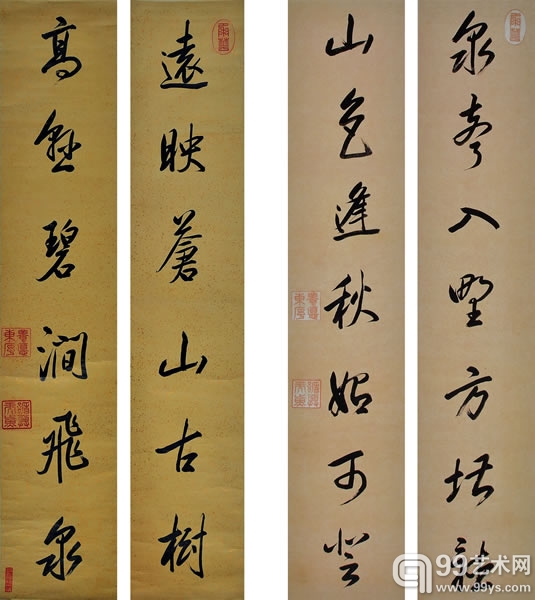 泉聲入野方堪聽
山色逢秋始可登
遠映蒼山古樹
高懸碧澗飛泉
99艺术网
www.99ys.com